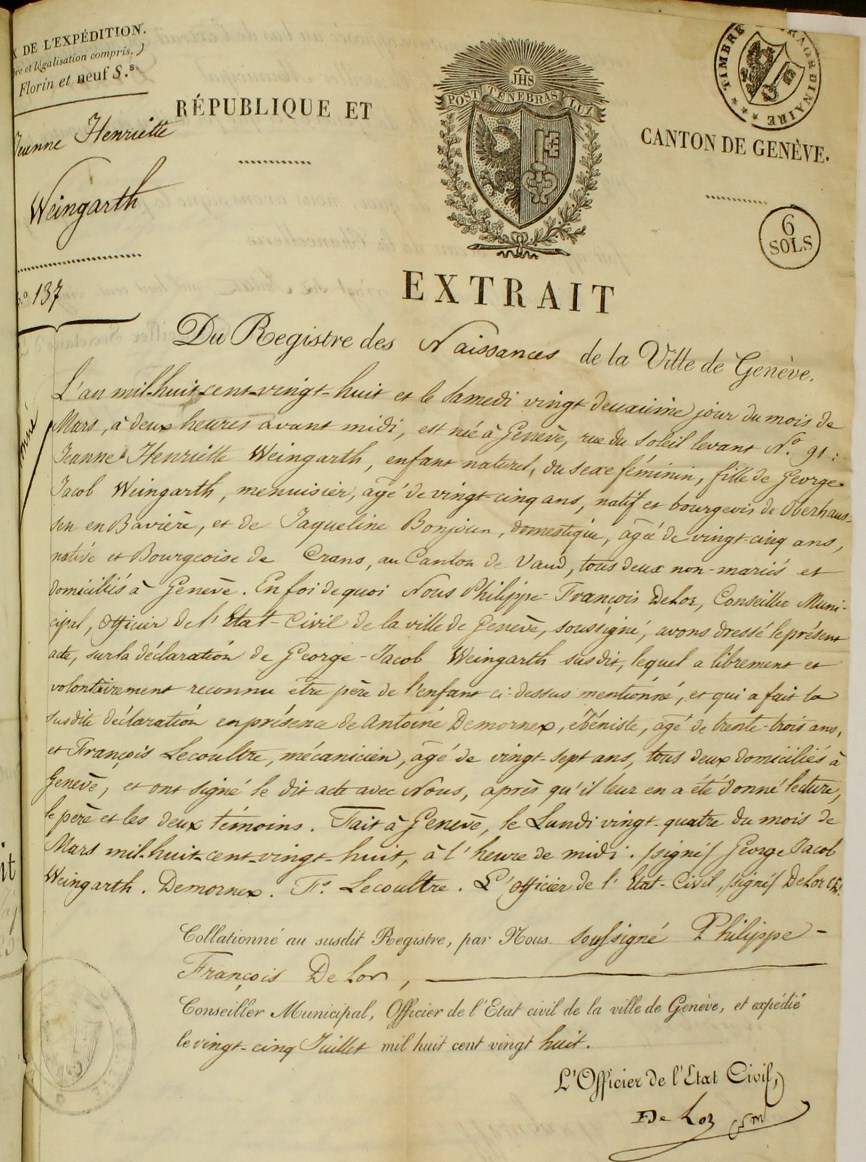 X DE L'EXPÉDITION.
re et légalisation compris,)
Florin et neuf S.s
JHS
POST TENEBRAS LUX
TIMBRE EXTRAORDINAIRE
RÉPUBLIQUE ET
CANTON DE GENÈVE.
Jeanne Henriette
Weingarth
N.o 137
6
SOLS
EXTRAIT
Du Registre des Naissances de la Ville de Genève.
L'an mil-huit-cent-vingt-huit et le Samedi vingt deuxième jour du mois de
Mars, à deux heures avant midi, est née à Genève, rue du Soleil levant No. 91:
Jeanne Henriette Weingarth, enfant naturel, du sexe féminin, fille de George-
Jacob Weingarth, menuisier, agé de vingt cinq ans, natif et bourgeois de Oberhau-
sen en Bavière, et de Jaqueline Bonjour, domestique, agée de vingt-cinq ans,
native et Bourgeoise de Crans, au Canton de Vaud, tous deux non-mariés et
domiciliés à Genève. En foi de quoi Nous Philippe-François DeLor, Conseiller Muni-
cipal, Officier de l'Etat-Civil de la ville de Genève, soussigné, avons dressé le présent
acte, sur la déclaration de George-Jacob Weingarth susdit, lequel a librement et
volontairement reconnu être père de l'enfant ci-dessus mentionné, et qui a fait la
susdite déclaration en présence de Antoine Demornex, Ebéniste, agé de trente-trois ans,
et François Lecoultre, mécanicien, agé de vingt-sept ans, tous deux domiciliés à
Genève, et ont signé le dit acte avec Nous, après qu'il leur en a été donné lecture,
le père et les deux témoins. Fait à Genève, le Lundi vingt-quatre du mois de
Mars mil-huit-cent-vingt-huit, à l'heure de midi. /signé/ George Jacob
Weingarth. Demornex. Fs. Lecoultre. L'officier de l'Etat-Civil, /signé/ DeLor
Collationné au susdit Registre, par Nous soussigné Philippe-
François De Lor,
Conseiller Municipal, Officier de l'Etat civil de la ville de Genève, et expédié
le vingt-cinq Juillet mil huit cent vingt huit.
L'Officier de l'Etat Civil,
De Lor